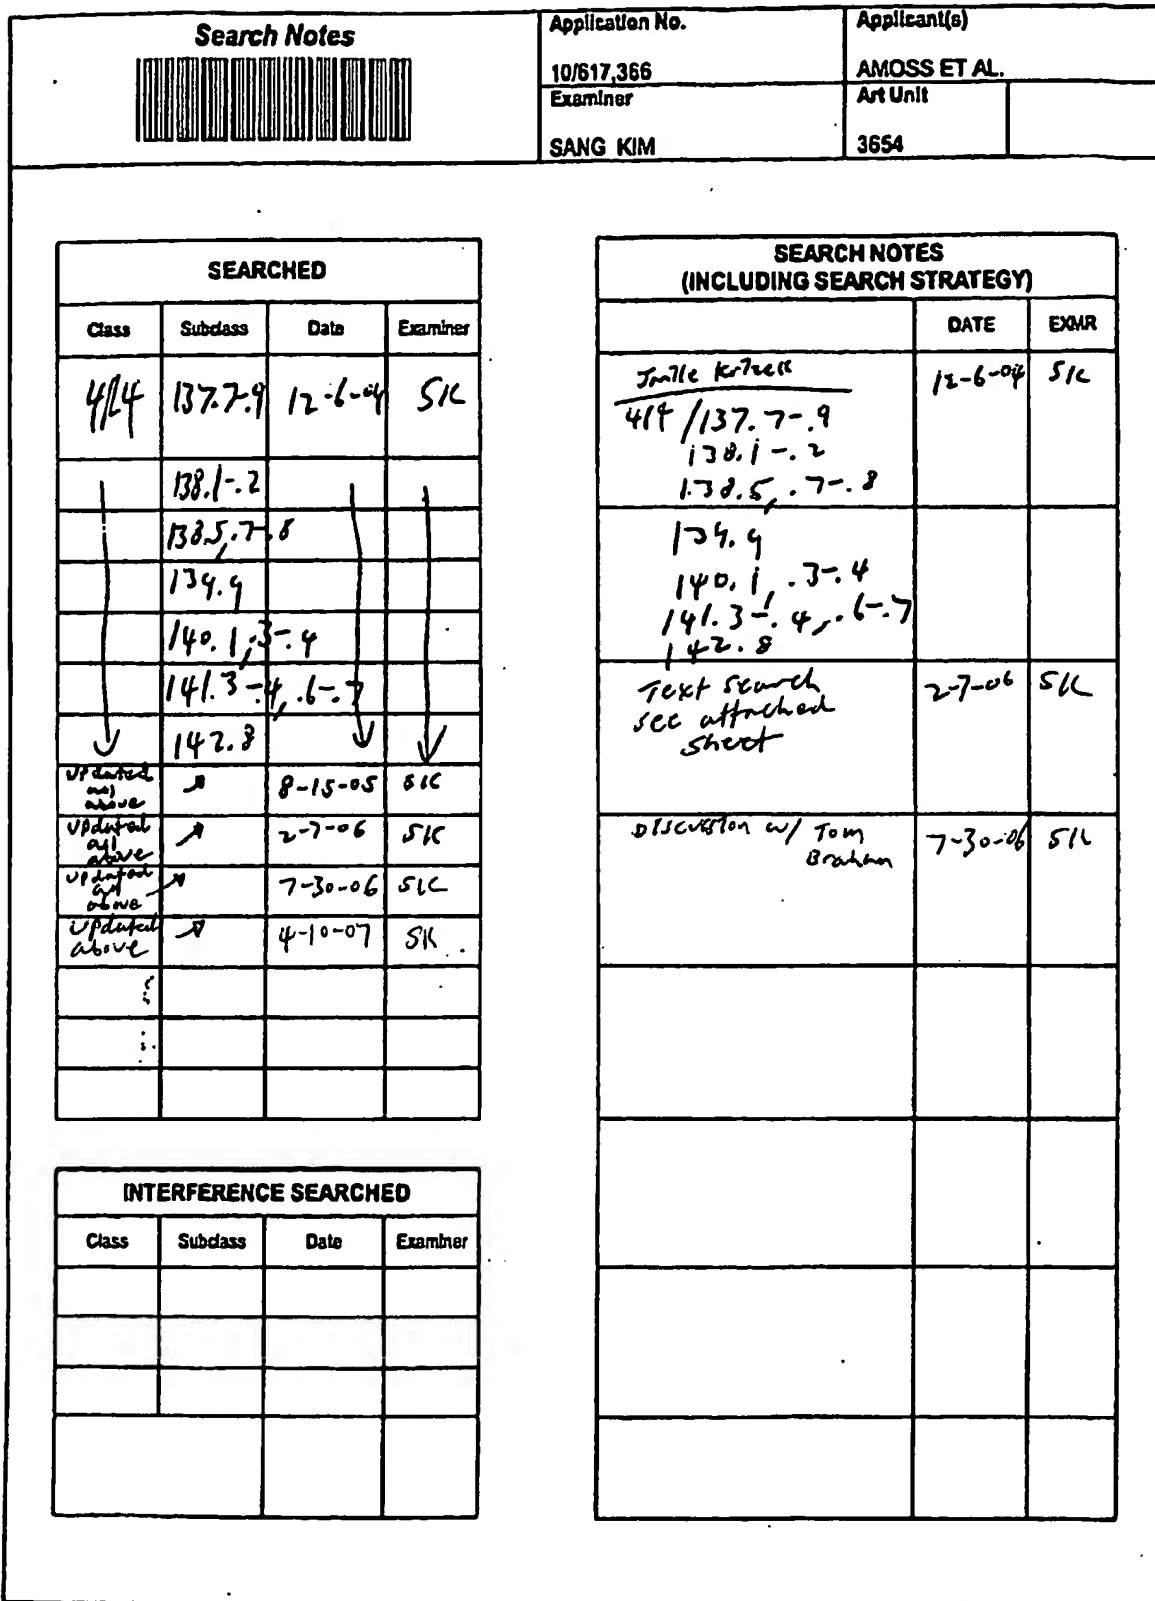 Search Notes
Application No.
10/617,366
Applicant(s)
AMOSS ET AL.
Examiner
SANG KIM
Art Unit
3654
SEARCHED
Class Subclass Date Examiner
414 137.7-.9 12-6-04 SK
138.1-.2
138.5,.7-.8
139.9
140.1,.3-.4
141.3-.4,.6-.7
142.8
updated all above 8-15-05 SK
updated all above 2-7-06 SK
updated all above 7-30-06 SK
updated above 4-10-07 SK
INTERFERENCE SEARCHED
Class Subclass Date Examiner
SEARCH NOTES
(INCLUDING SEARCH STRATEGY)
DATE EXMR
12-6-04 SK
414/137.7-.9
138.1-.2
138.5,.7-.8
139.9
140.1,.3-.4
141.3-.4,.6-.7
142.8
Text search 2-7-06 SK
see attached
sheet
Discussion w/ Tom 7-30-06 SK